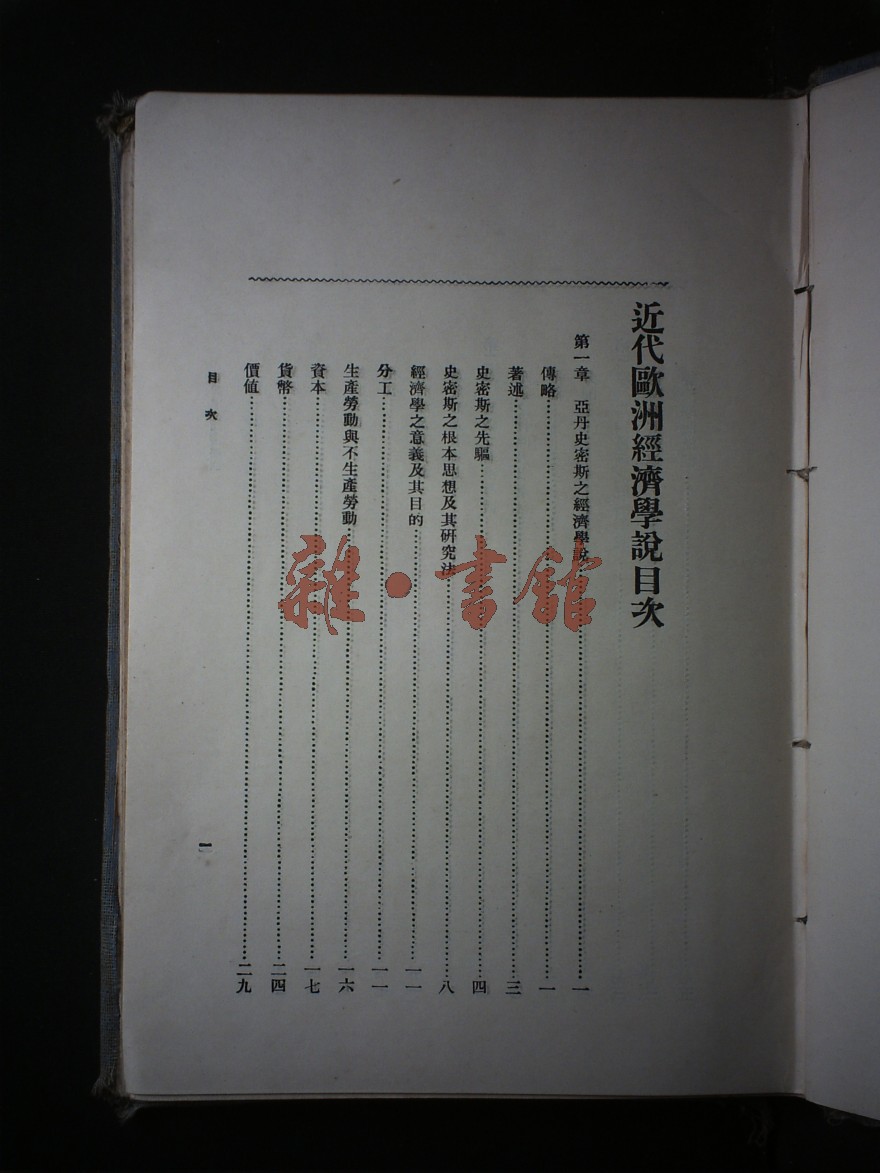 近代歐洲經濟學說目次
第一章　亞丹史密斯之經濟學說……一
傳略……一
著述……三
史密斯之先驅……四
史密斯之根本思想及其研究法……八
經濟學之意義及其目的……一一
分工……一一
生產勞動與不生產勞動……一六
資本……一七
貨幣……二四
價值……二九
目次
一
雜·書館